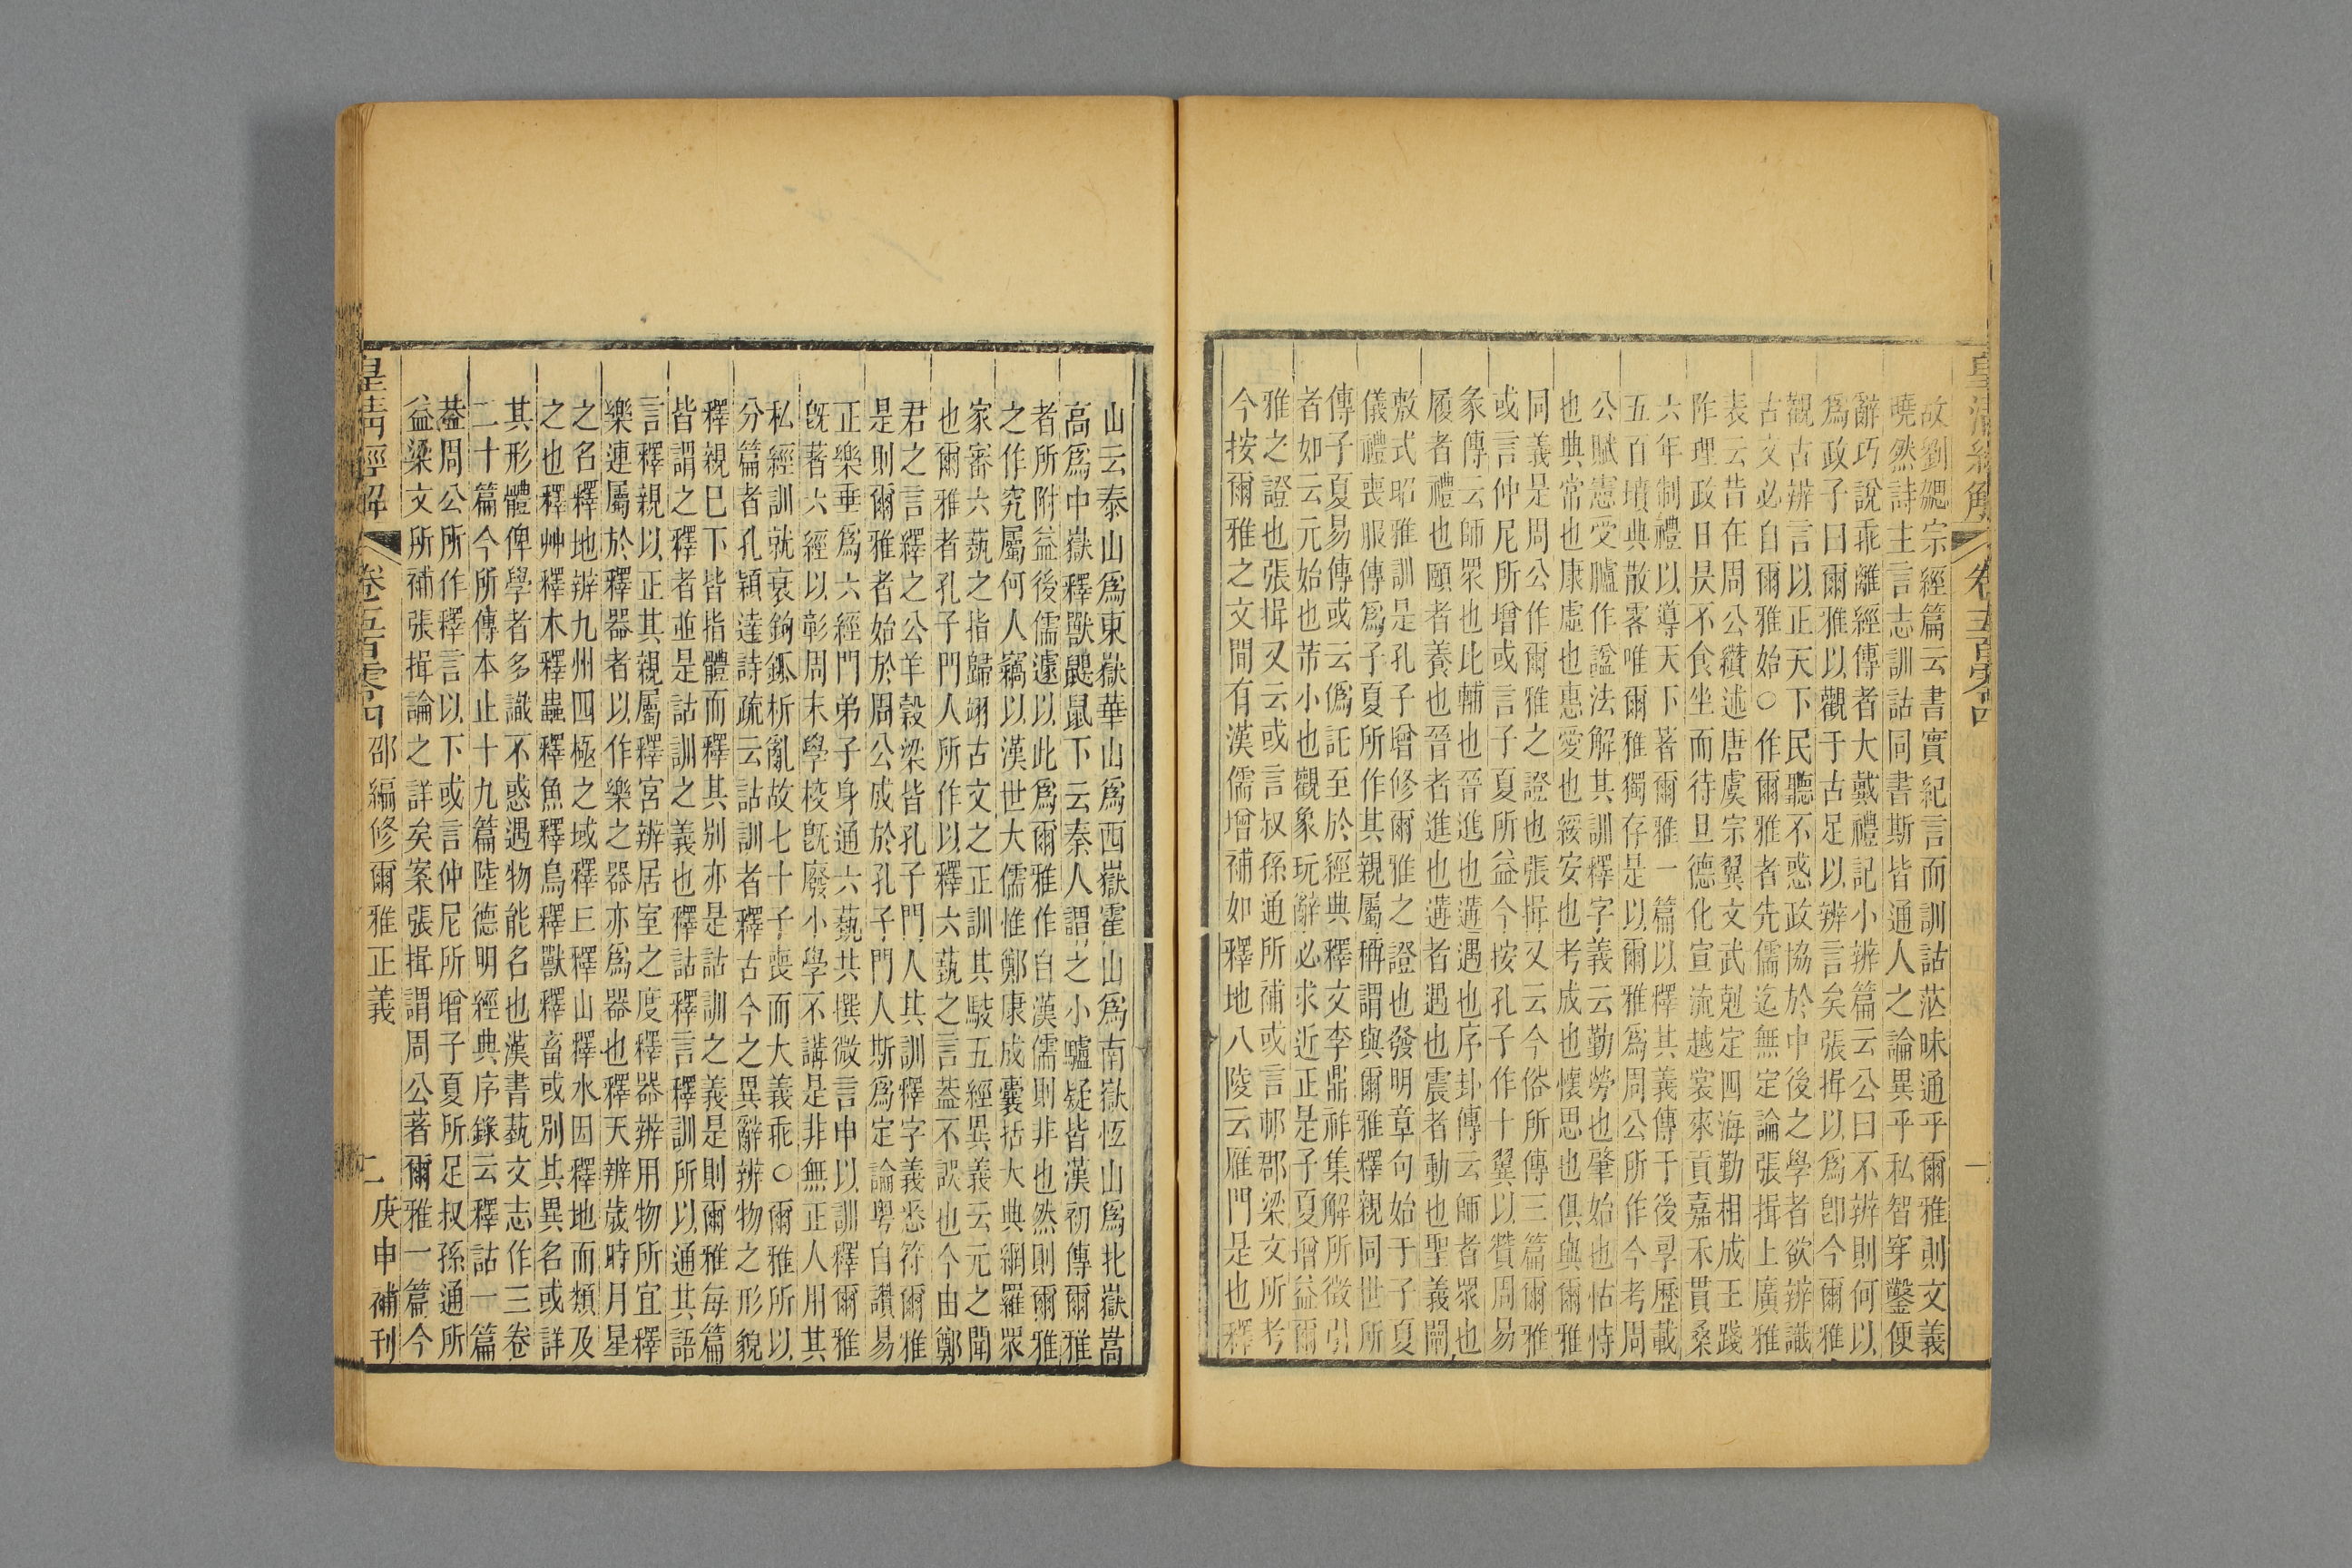 皇清經解
卷五百零四
一
故劉勰宗經篇云書實紀言而訓詁茫昧通乎爾雅則文義
曉然詩主言志訓詁同書斯皆通人之論異乎私智穿鑿便
辭巧說乖離經傳者大戴禮記小辨篇云公曰不辨則何以
爲政子曰爾雅以觀于古足以辨言矣張揖以爲卽今爾雅
觀古辨言以正天下民聽不惑政協於中後之學者欲辨識
古文必自爾雅始○作爾雅者先儒迄無定論張揖上廣雅
表云昔在周公纘述唐虞宗翼文武剋定四海勤相成王踐
阼理政日昃不食坐而待旦德化宣流越裳來貢嘉禾貫桑
六年制禮以導天下著爾雅一篇以釋其義傳于後孠歷載
五百墳典散零唯爾雅獨存是以爾雅爲周公所作今考周
公賦憲受臚作諡法解其訓釋字義云勤勞也肇始也怙恃
也典常也康虛也惠愛也綏安也考成也懷思也俱與爾雅
同義是周公作爾雅之證也張揖又云今俗所傳三篇爾雅
或言仲尼所增或言子夏所益今按孔子作十翼以贊周易
彖傳云師眾也比輔也晉進也遘遇也序卦傳云師者眾也
履者禮也頤者養也晉者進也遘者遇也震者動也聖義闡
敷式昭雅訓是孔子增修爾雅之證也發明章句始于子夏
儀禮喪服傳爲子夏所作其親屬稱謂與爾雅釋親同世所
傳子夏易傳或云僞託至於經典釋文李鼎祚集解所徵引
者如云元始也芾小也觀象玩辭必求近正是子夏增益爾
雅之證也張揖又云或言叔孫通所補或言邶郡梁文所考
今按爾雅之文閒有漢儒增補如釋地八陵云雁門是也釋
山云泰山爲東嶽華山爲西嶽霍山爲南嶽恆山爲北嶽嵩
高爲中嶽釋獸鼮鼠下云秦人謂之小驢疑皆漢初傳爾雅
者所附益後儒遽以此爲爾雅作自漢儒則非也然則爾雅
之作究屬何人竊以漢世大儒惟鄭康成囊括大典網羅眾
家審六蓺之指歸翊古文之正訓其駁五經異義云元之聞
也爾雅者孔子門人所作以釋六蓺之言葢不誤也今由鄭
君之言繹之公羊穀梁皆孔子門人其訓釋字義悉符爾雅
是則爾雅者始於周公成於孔子門人斯爲定論粤自讚易
正樂垂爲六經門弟子身通六蓺共撰微言申以訓釋爾雅
旣著六經以彰周末學校旣廢小學不講是非無正人用其
私經訓就衰鉤鈲析亂故七十子喪而大義乖○爾雅所以
分篇者孔穎達詩疏云詁訓者釋古今之異辭辨物之形貌
釋親巳下皆指體而釋其別亦是詁訓之義是則爾雅每篇
皆謂之釋者並是詁訓之義也釋詁釋言釋訓所以通其語
言釋親以正其親屬釋宮辨居室之度釋器辨用物所宜釋
樂連屬於釋器者以作樂之器亦爲器也釋天辨歲時月星
之名釋地辨九州四極之域釋丘釋山釋水因釋地而類及
之也釋艸釋木釋蟲釋魚釋鳥釋獸釋畜或別其異名或詳
其形體俾學者多識不惑遇物能名也漢書蓺文志作三卷
二十篇今所傳本止十九篇陸德明經典序錄云釋詁一篇
葢周公所作釋言以下或言仲尼所增子夏所足叔孫通所
益梁文所補張揖論之詳矣案張揖謂周公著爾雅一篇今
皇清經解
卷五百零四
邵編修爾雅正義
二
庚申補刊